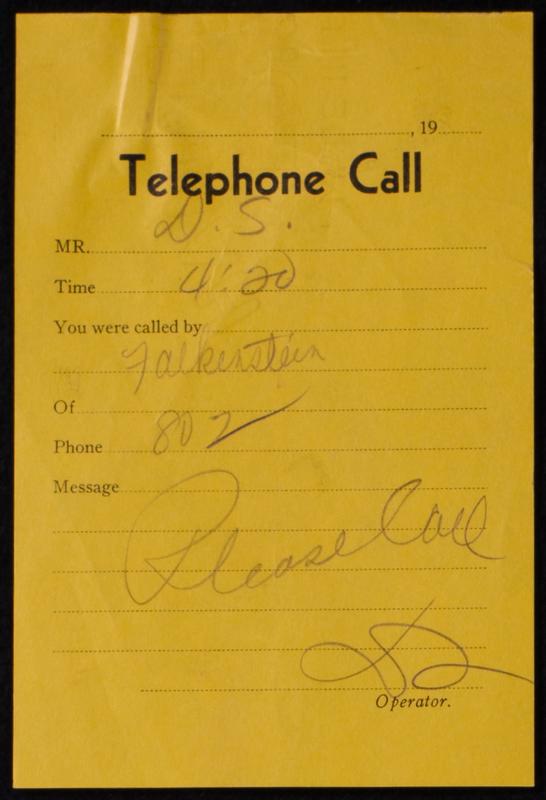 , 19
Telephone Call
MR. D. S.
Time 4:20
You were called by
Falkenstein
Of
Phone 802
Message
Please Call
Operator.